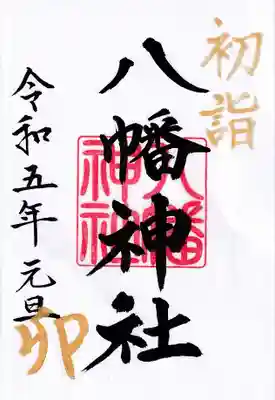 初詣
八幡神社
八幡神社
令和五年 元旦
卯